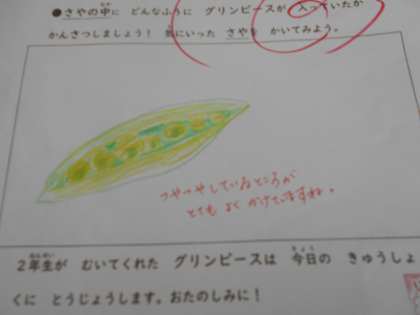 ●さやの中に どんなふうに グリンピースが 入っていたか
かんさつしましょう! 気にいった さやを かいてみよう。
つやつやしているところが
とても よく かけていますね。
2年生が むいてくれた グリンピースは 今日の きゅうしょ
くに とうじょうします。おたのしみに!